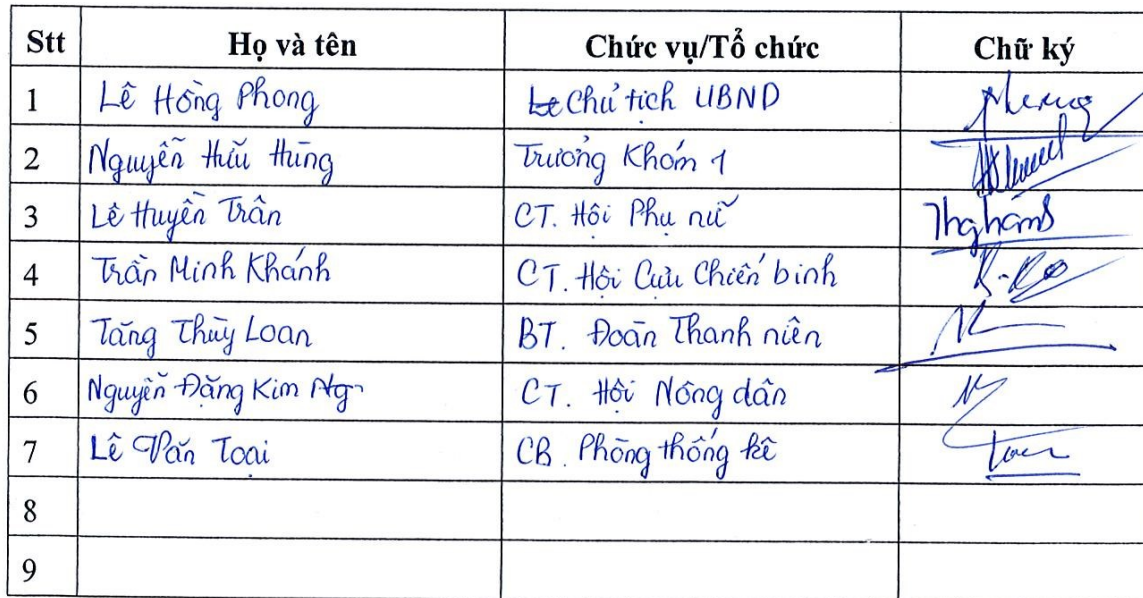 Stt Họ và tên Chức vụ/Tổ chức Chữ ký
1 Lê Hồng Phong Chủ tịch UBND
2 Nguyễn Hữu Hùng Trưởng Khóm 1
3 Lê Huyền Trân CT. Hội Phụ nữ
4 Trần Minh Khánh CT. Hội Cựu Chiến binh
5 Tăng Thùy Loan BT. Đoàn Thanh niên
6 Nguyễn Đặng Kim CT. Hội Nông dân
7 Lê Văn Toại CB. Phòng thống kê
8
9